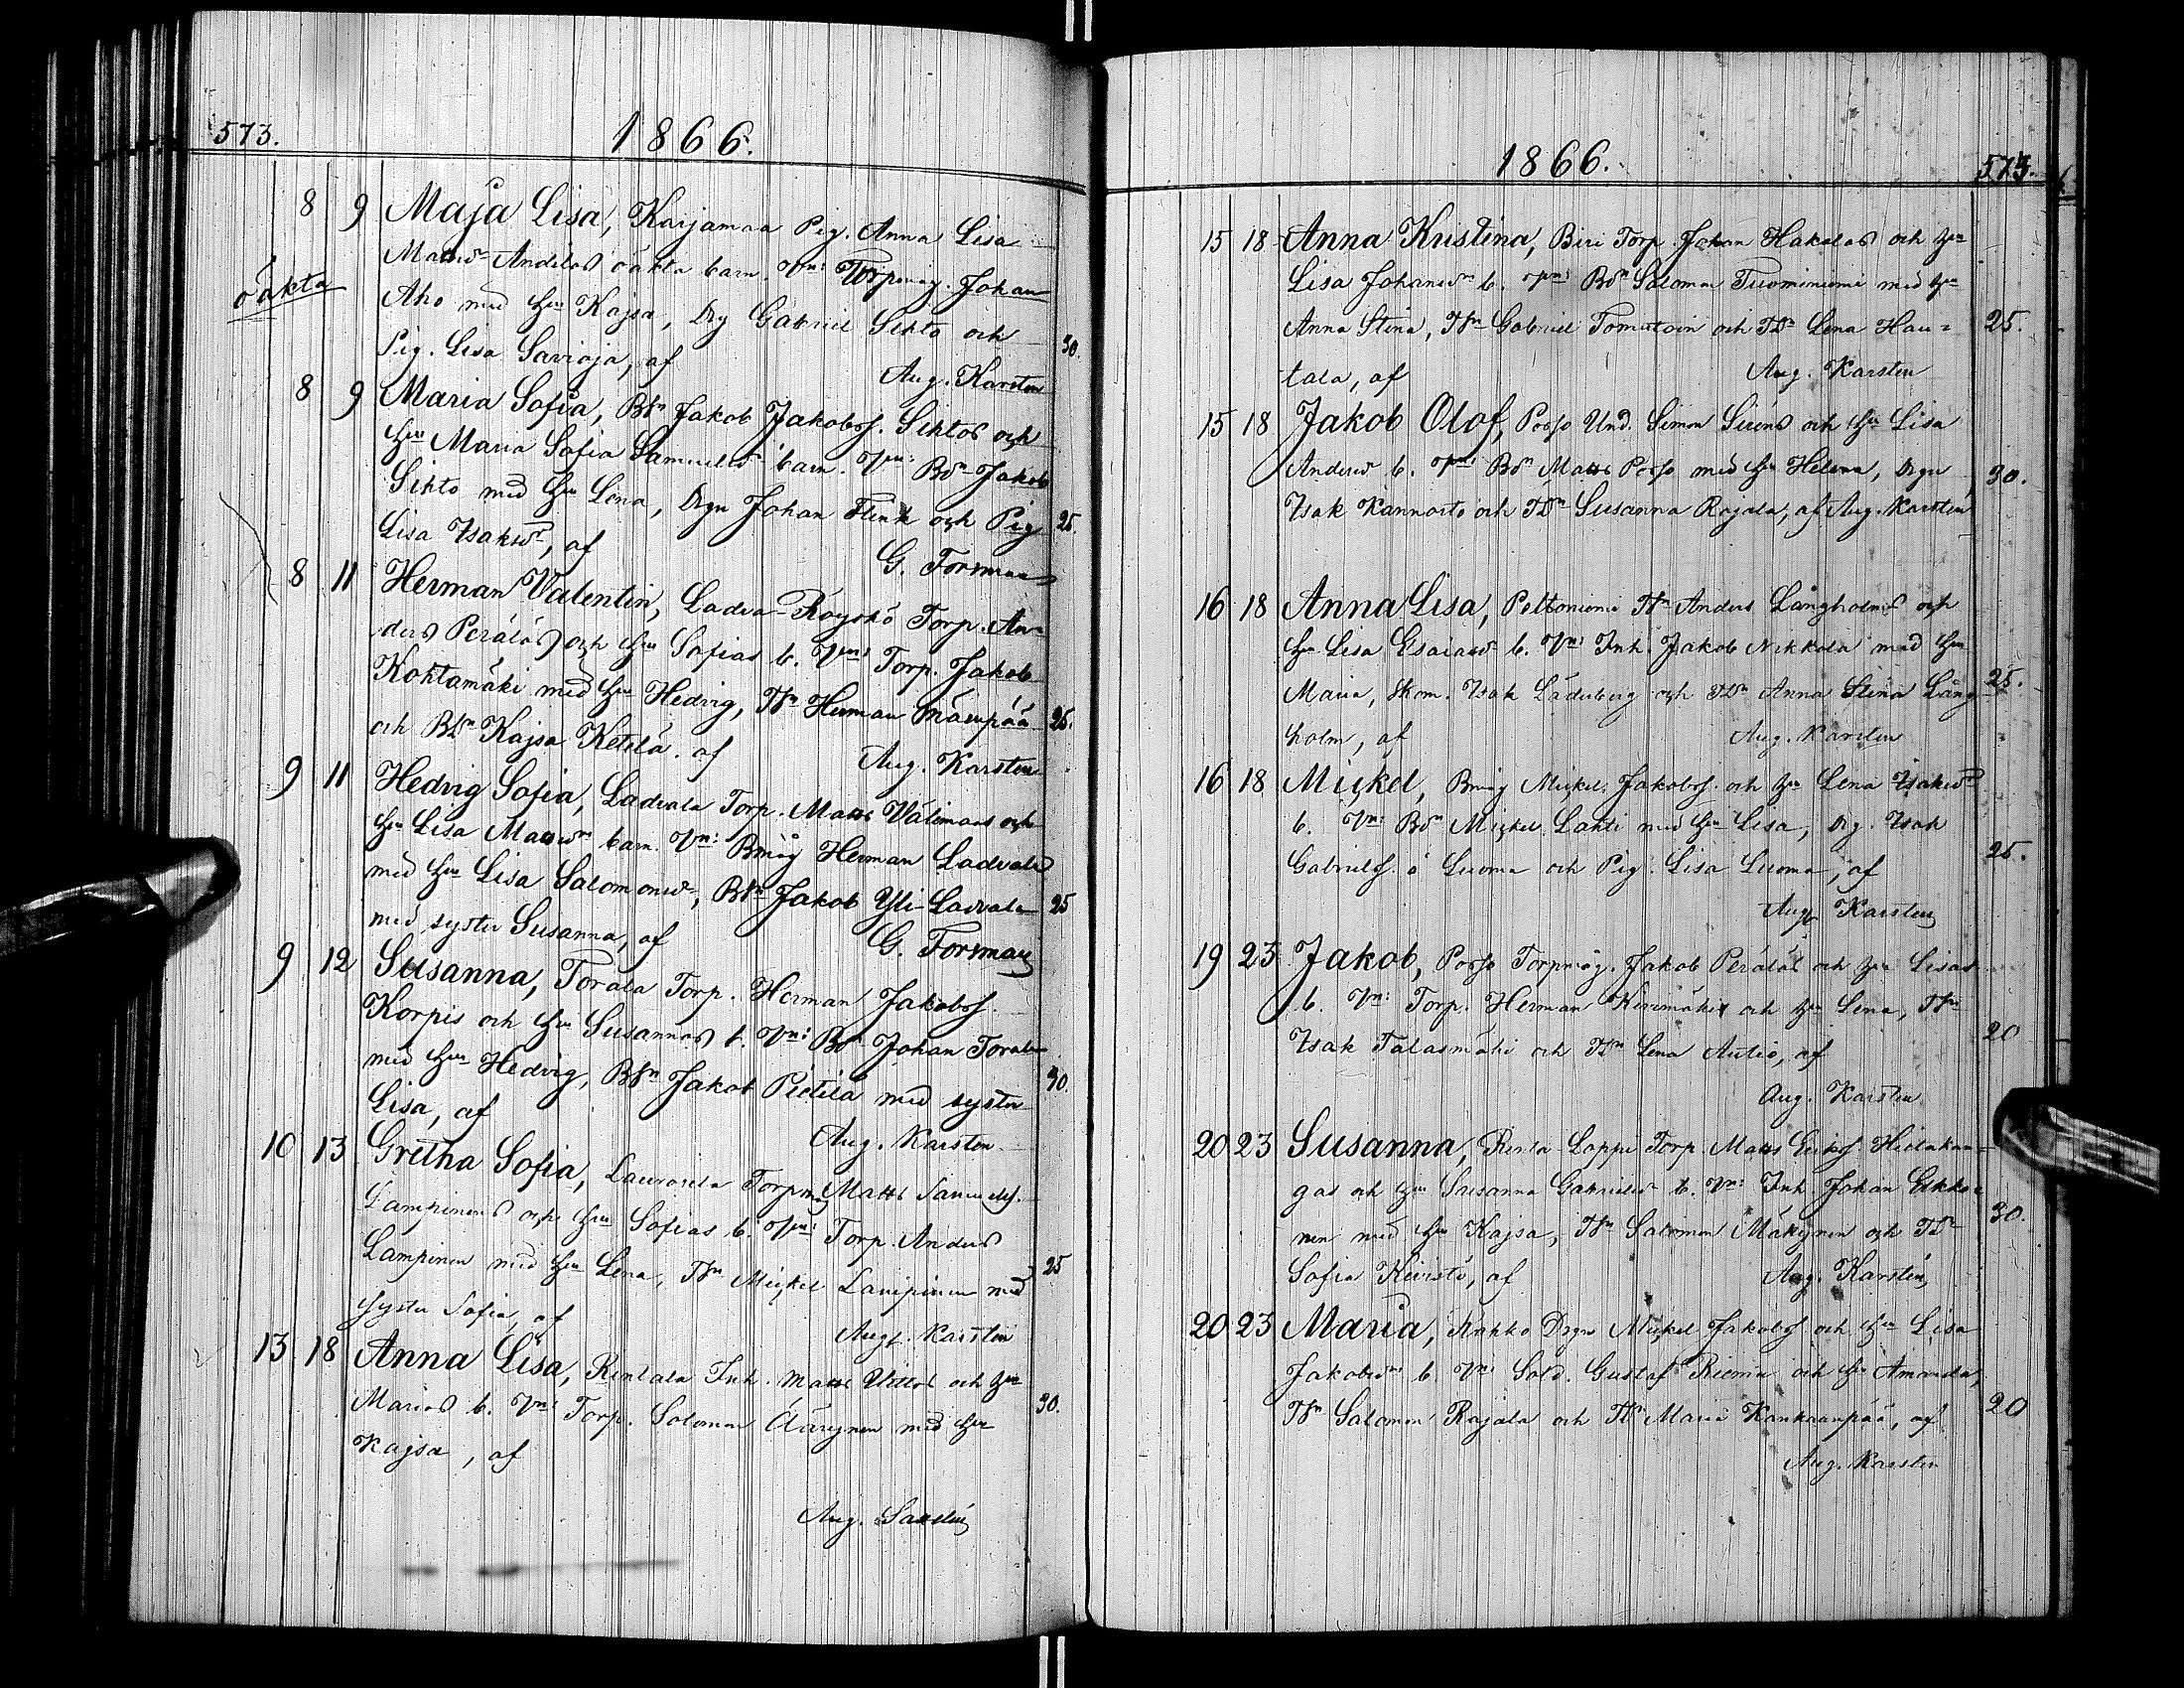 573.
1866.
8 9 Maja Lisa, Karjamaa Pig. Anna Lisa
Mattsdr Andelas oäkta barn. Vn: Torpmåg. Johan
oäkta
Aho med hu Kajsa, Drg Gabriel Sikto och
Pig. Lisa Savioja, af 30.
Aug. Karsten
8 9 Maria Sofia, Bsn Jakob Jakobss. Siktos och
hu Maria Sofia Samuelsdr barn. Vn: Bdn Jakob
Sikto med hu Lena, Drgn Johan Flink och Pig 25.
Lisa Isaksdr, af
G. Forsman
8 11 Herman Valentin, Ladva-Röyskö Torp. An-
ders Peräläs och hu Sofias b. Vn: Torp. Jakob
Koktamäki med hu Hedvig, Tsn Herman Mäenpää 25.
och Bdr Kajsa Ketelä. af
Aug. Karsten
9 11 Hedvig Sofia, Ladvala Torp. Matts Välimaas och
hu Lisa Mattsdr barn. Vn: Bmåg Herman Ladvala
med hu Lisa Salomonsdr, Bsn Jakob Yli-Ladvala 25
med syster Susanna, af
G. Forsman
9 12 Susanna, Torala Torp. Herman Jakobss.
Korpis och hu Susannas b. Vn: Bdn Johan Torala
med hu Hedvig, Bsn Jakob Pietilä med syster 30.
Lisa, af
Aug. Karsten
10 13 Gretha Sofia, Laurosela Torpmåg Matts Samuelss.
Lampinens och hu Sofias b. Vn: Torp. Anders
Lampinen med hu Lena, Tsn Mickel Lampinen med 25
syster Sofia, af
Aug. Karsten
13 18 Anna Lisa, Rintala Inh. Matts Uittos och hu
Marias b. Vn: Torp. Salomon med hu 30.
Kajsa, af
Aug. Sandin
1866. 573.
15 18 Anna Kristina, Biri Torp. Johan Hakalas och hu
Lisa Johansdr b. Vn: Bdn Salomon Tuominiemi med hu
Anna Stina, Tsn Gabriel och Tdr Lena Hau- 25.
tala, af Aug. Karsten
15 18 Jakob Olof, Posso Und. Simon Siréns och hu Lisa
Andersdr b. Vn: Bdn Matts Posso med hu Helena, Drgn 30.
Isak Kannosto och Tdr Susanna Rajala, af Aug. Karsten
16 18 Anna Lisa, Peltoniemi Tsn Anders Långholms och
hu Lisa Esaiasdr b. Vn: Inh. Jakob Nikkola med hu
Maria, Skom. Isak Läderberg och Tdr Anna Stina Lång- 25.
holm, af Aug. Karsten
16 18 Mickel, Bmåg Mickel Jakobss. och hu Lena Isaksdr
b. Vn: Bdn Mickel Lahti med hu Lisa, Drg. Isak
Gabrielss. o Luoma och Pig. Lisa Luoma, af 25.
Aug. Karsten
19 23 Jakob, Posso Torpmåg. Jakob Peräläs och hu Lisas
b. Vn: Torp. Herman Kivimäki och hu Lena, Tsn
Isak Talasmäki och Tdr Lena Autio, af 20
Aug. Karsten
20 23 Susanna, Rinta-Loppi Torp. Matts Erikss. Hietakan-
gas och hu Susanna Gabrielsdr b. Vn: Inh Johan Ekko-
nen med hu Kajsa, Tsn Salomon Mäkynen och Tdr 30.
Sofia Keiristö, af Aug. Karsten
20 23 Maria, Kukko Drgn Mickel Jakobss och hu Lisa
Jakobsdr b Vn: Sold. Gustaf Riemu och hu Amanda,
Tsn Salomon Rajala och Tdr Maria Kankaanpää, af 20
Aug. Karsten